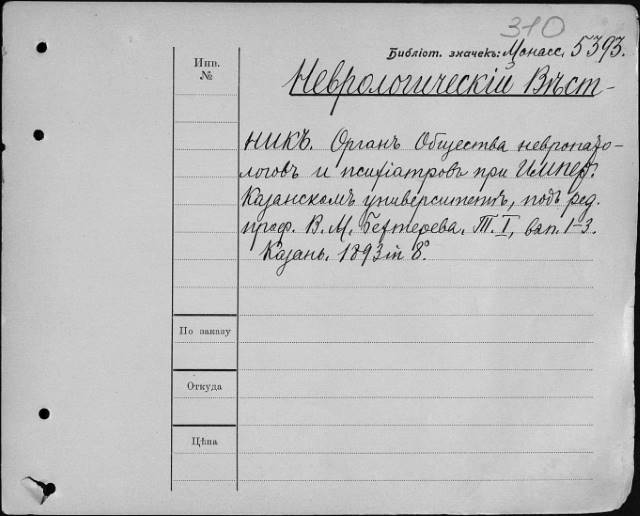 310
Библіот. значекъ: Монасс. 5393.
Инв.
№
Неврологическій Вѣст-
никъ. Органъ Общества невропато-
логовъ и психіатровъ при Импер.
Казанскомъ университетѣ, подъ ред.
проф. В. М. Бехтерева. Т. I, вып. 1-3.
Казань. 1893 in 8°.
По заказу
Откуда
Цѣна